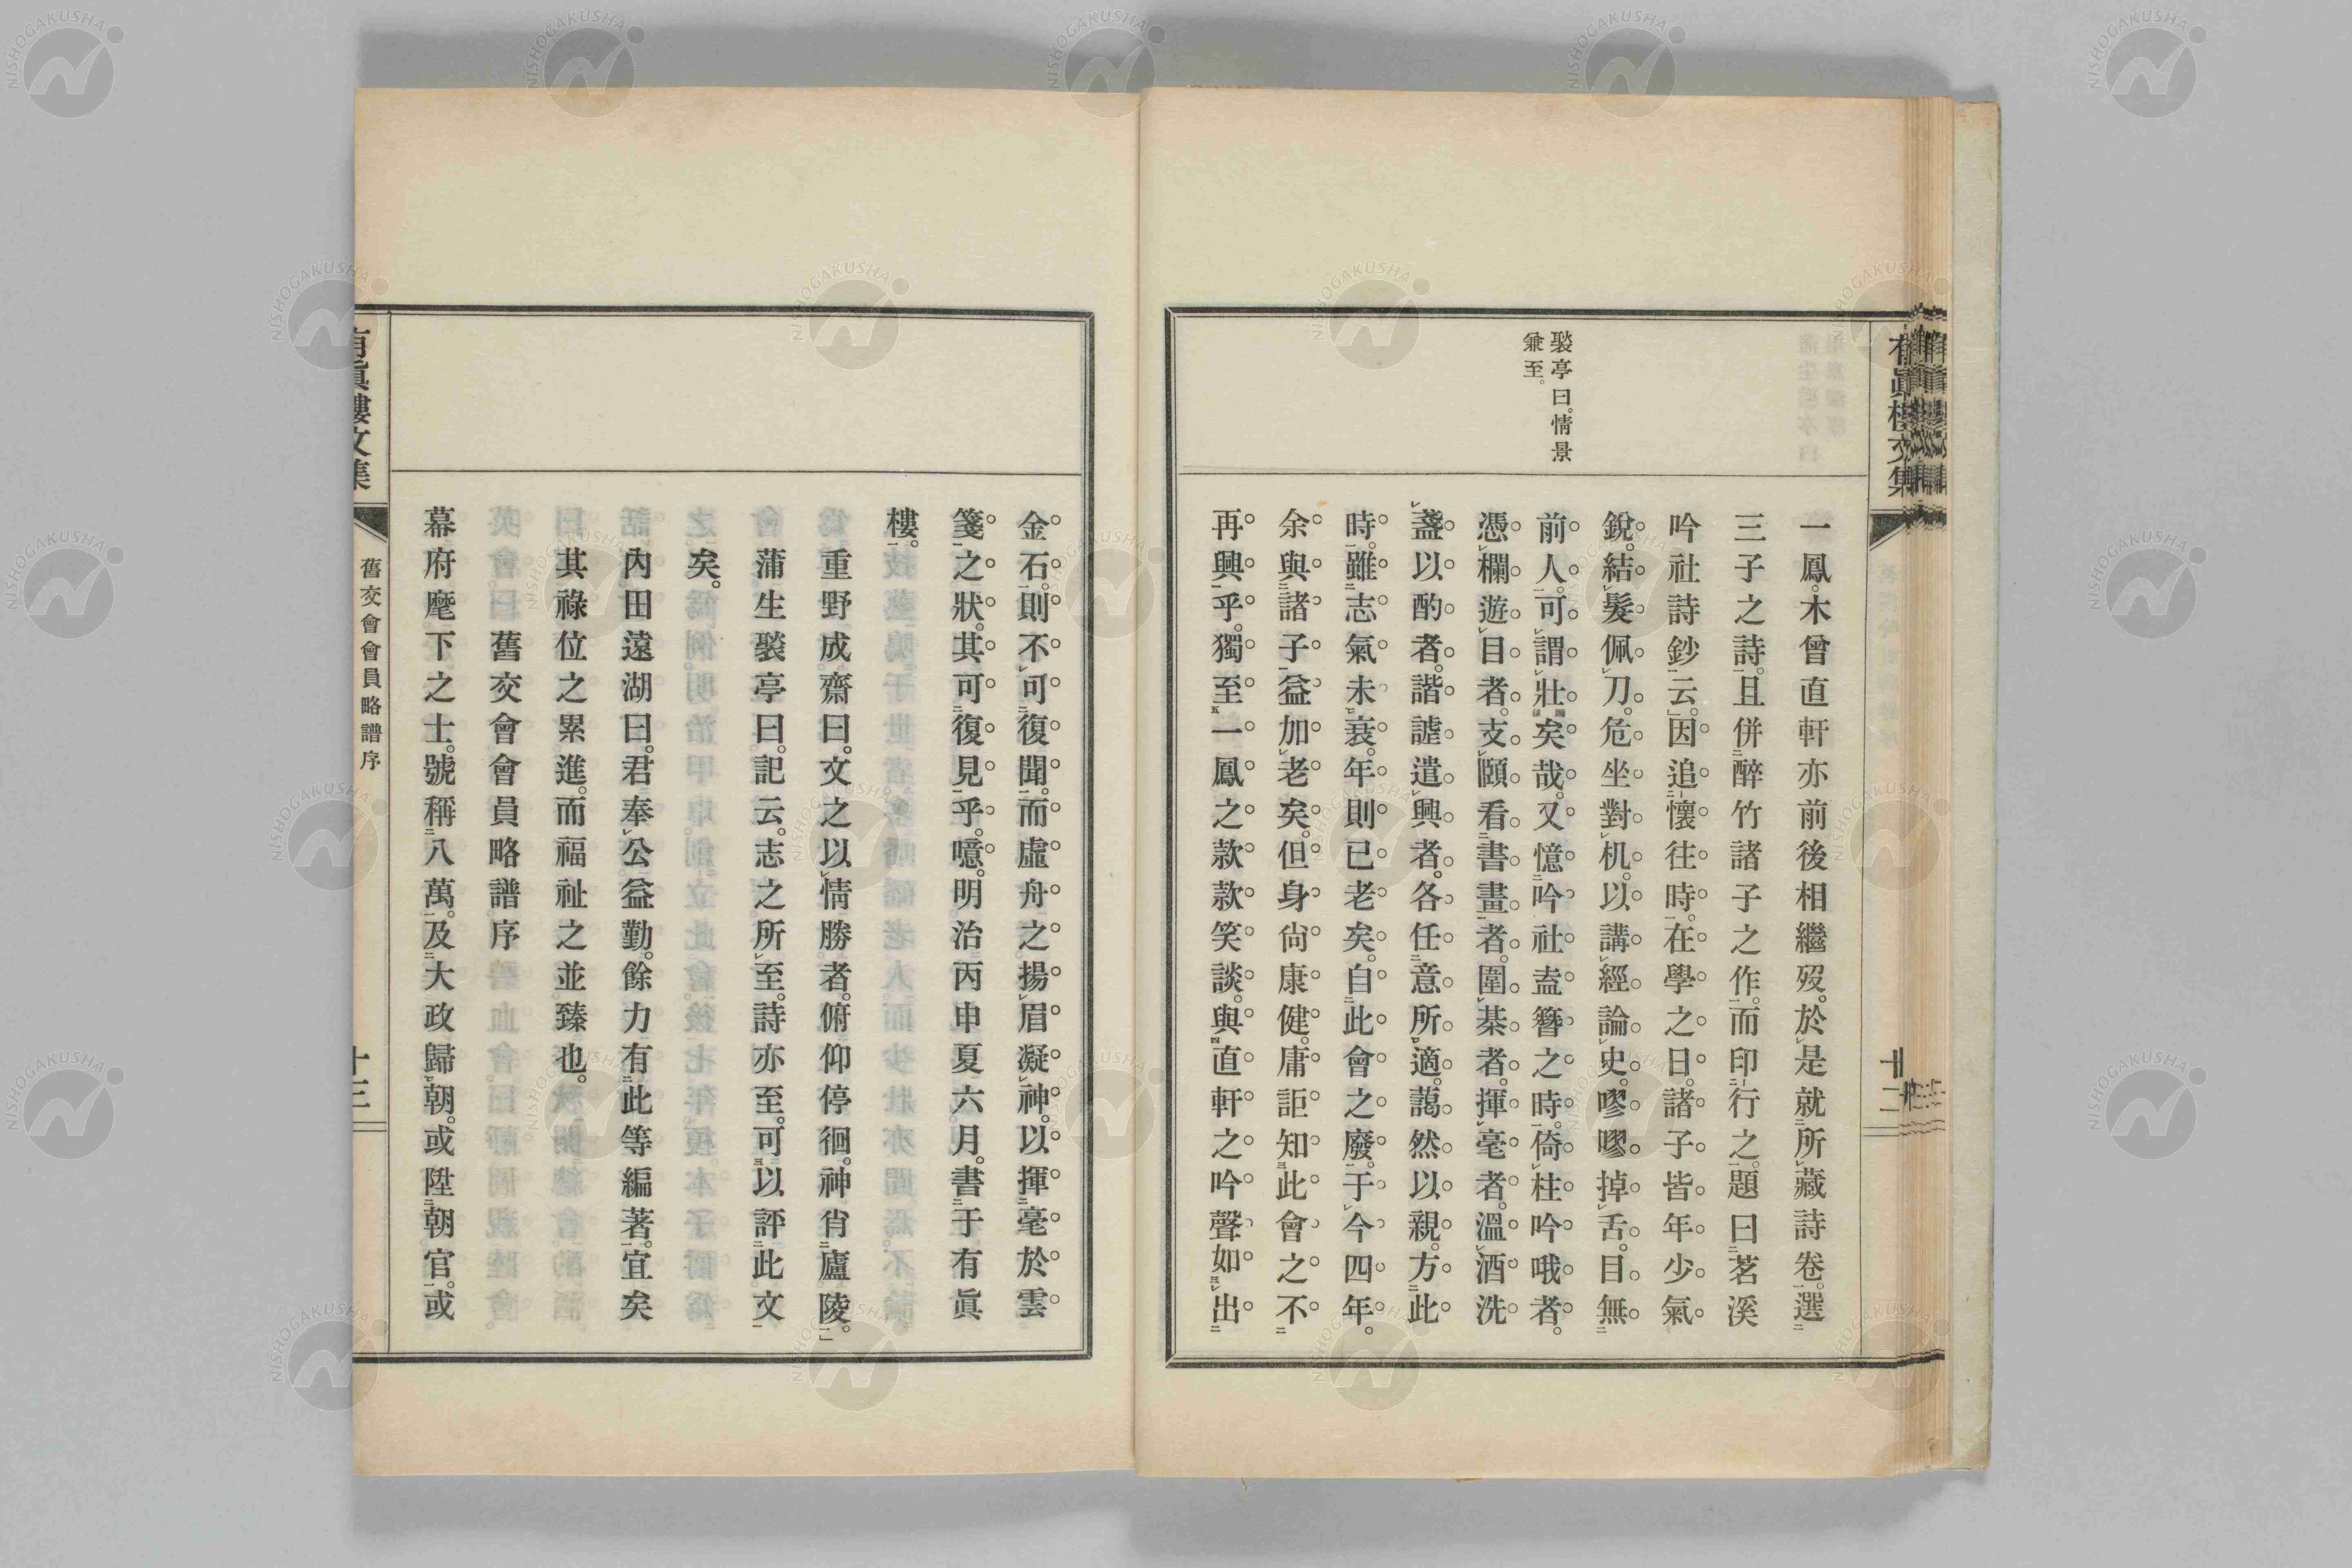 有眞樓文集
褧亭曰。情景
兼至。
一鳳。木曾直軒亦前後相繼歿。於是就所藏詩卷。選
三子之詩。且併醉竹諸子之作。而印行之。題曰茗溪
吟社詩鈔云。因追懷往時。在學之日。諸子皆年少氣
銳。結髮佩刀。危坐對机。以講經論史。嘐嘐掉舌。目無
前人。可謂壯矣哉。又憶吟社盍簪之時。倚柱吟哦者。
憑欄遊目者。支頤看書畫者。圍棊者。揮毫者。溫酒洗
盞以酌者。諧謔遣興者。各任意所適。藹然以親。方此
時。雖志氣未衰。年則已老矣。自此會之廢。于今四年。
余與諸子益加老矣。但身尙康健。庸詎知此會之不
再興乎。獨至一鳳之款款笑談。與直軒之吟聲如出
金石。則不可復聞。而虛舟之揚眉凝神。以揮毫於雲
箋之狀。其可復見乎。噫。明治丙申夏六月。書于有眞
樓。
重野成齋曰。文之以情勝者。俯仰停徊。神肖廬陵。
蒲生褧亭曰。記云。志之所至。詩亦至。可以評此文
矣。
內田遠湖曰。君奉公益勤。餘力有此等編著。宜矣
其祿位之累進。而福祉之並臻也。
舊交會會員略譜序
幕府麾下之士。號稱八萬。及大政歸朝。或陞朝官。或
有眞樓文集
舊交會會員略譜序
十三
NISHOGAKUSHA